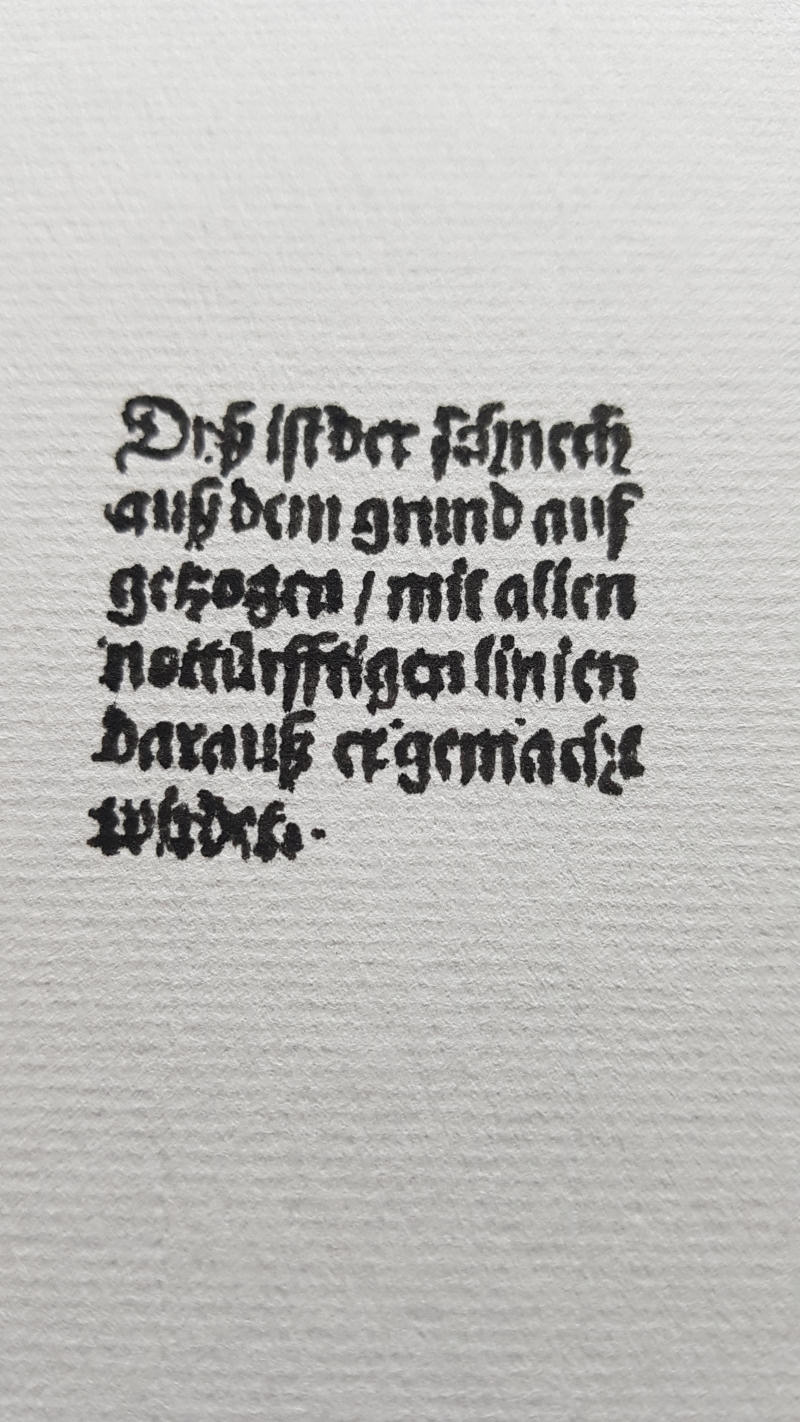 Diß ist der schneck
auß dem grund auf
gezogen / mit allen
nottürfftigen linien
darauß er gemacht
wirdet.